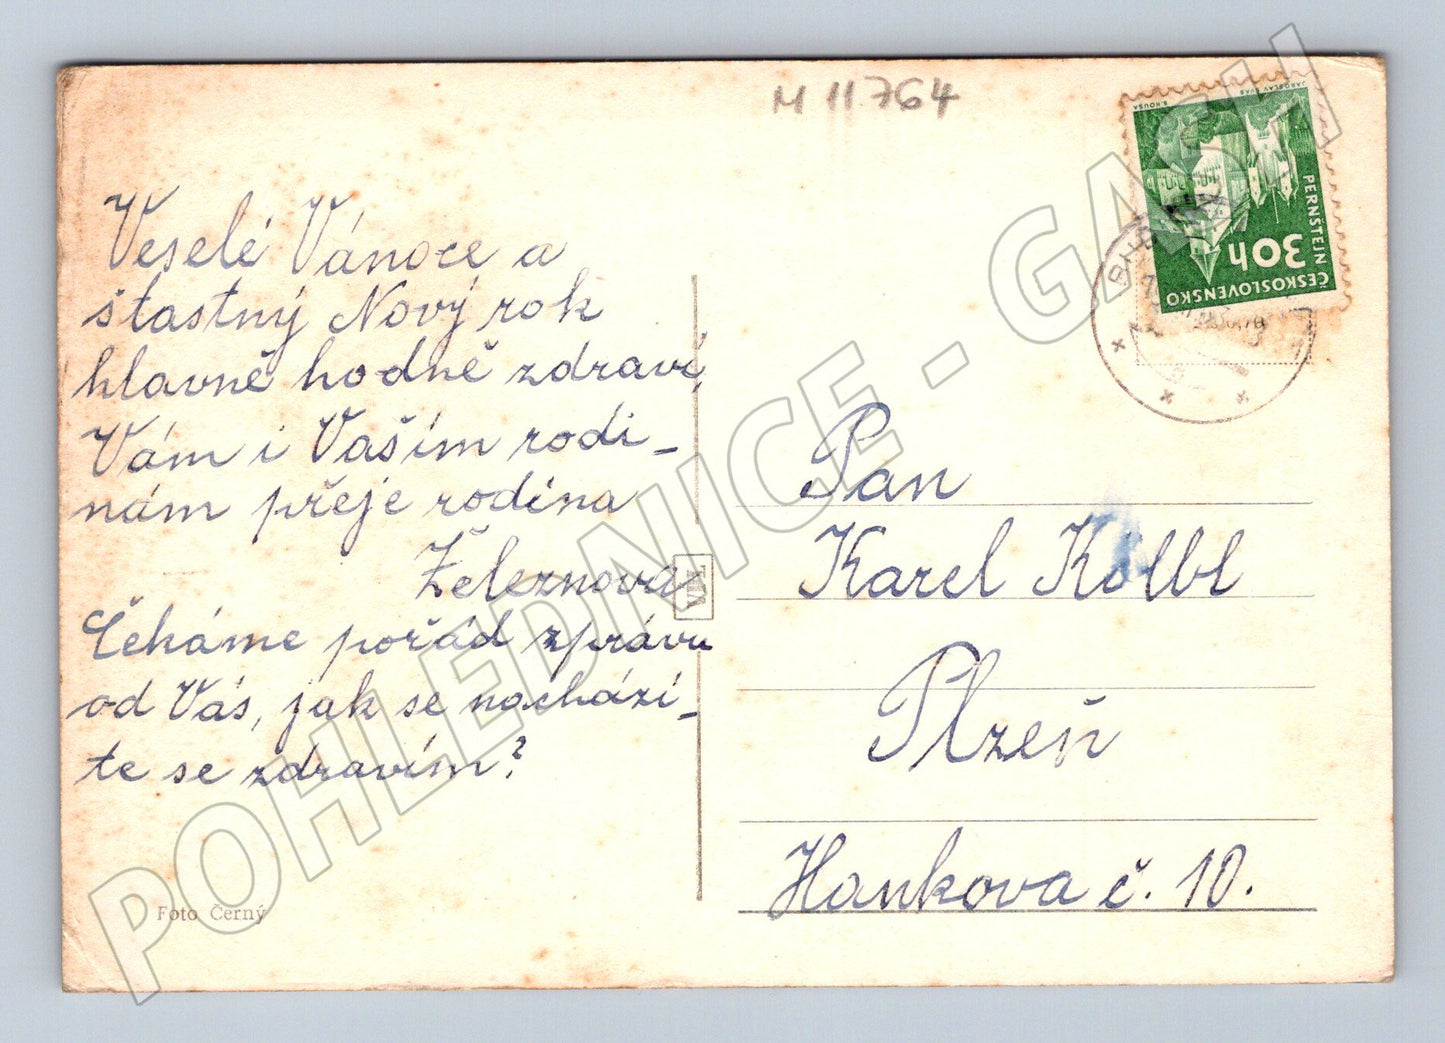 M 11764
Veselé Vánoce a
šťastný Nový rok
hlavně hodně zdraví,
Vám i Vaším rodi_
nám přeje rodina
Železnová
Čekáme pořád zprávu
od Vás, jak se nacházi_
te se zdravím?
Foto Černý
ČESKOSLOVENSKO
30h
PERNŠTEJN
Pan
Karel Kölbl
Plzeň
Hankova č. 10.
POHLEDNICE - GASU